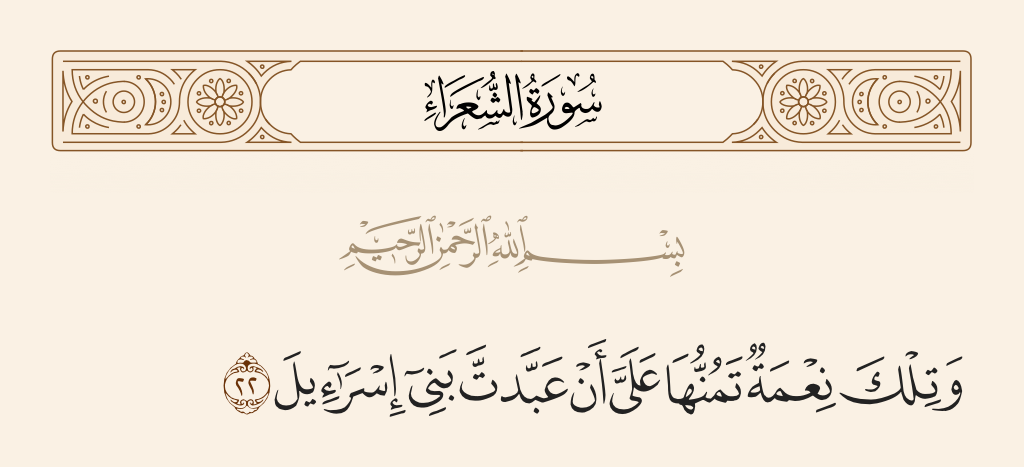 سُورَةُ الشُّعَرَاءِ
بِسْمِ ٱللَّهِ ٱلرَّحْمَٰنِ ٱلرَّحِيمِ
وَتِلْكَ نِعْمَةٌ تَمُنُّهَا عَلَىَّ أَنْ عَبَّدتَّ بَنِىٓ إِسْرَٰٓءِيلَ ٢٢